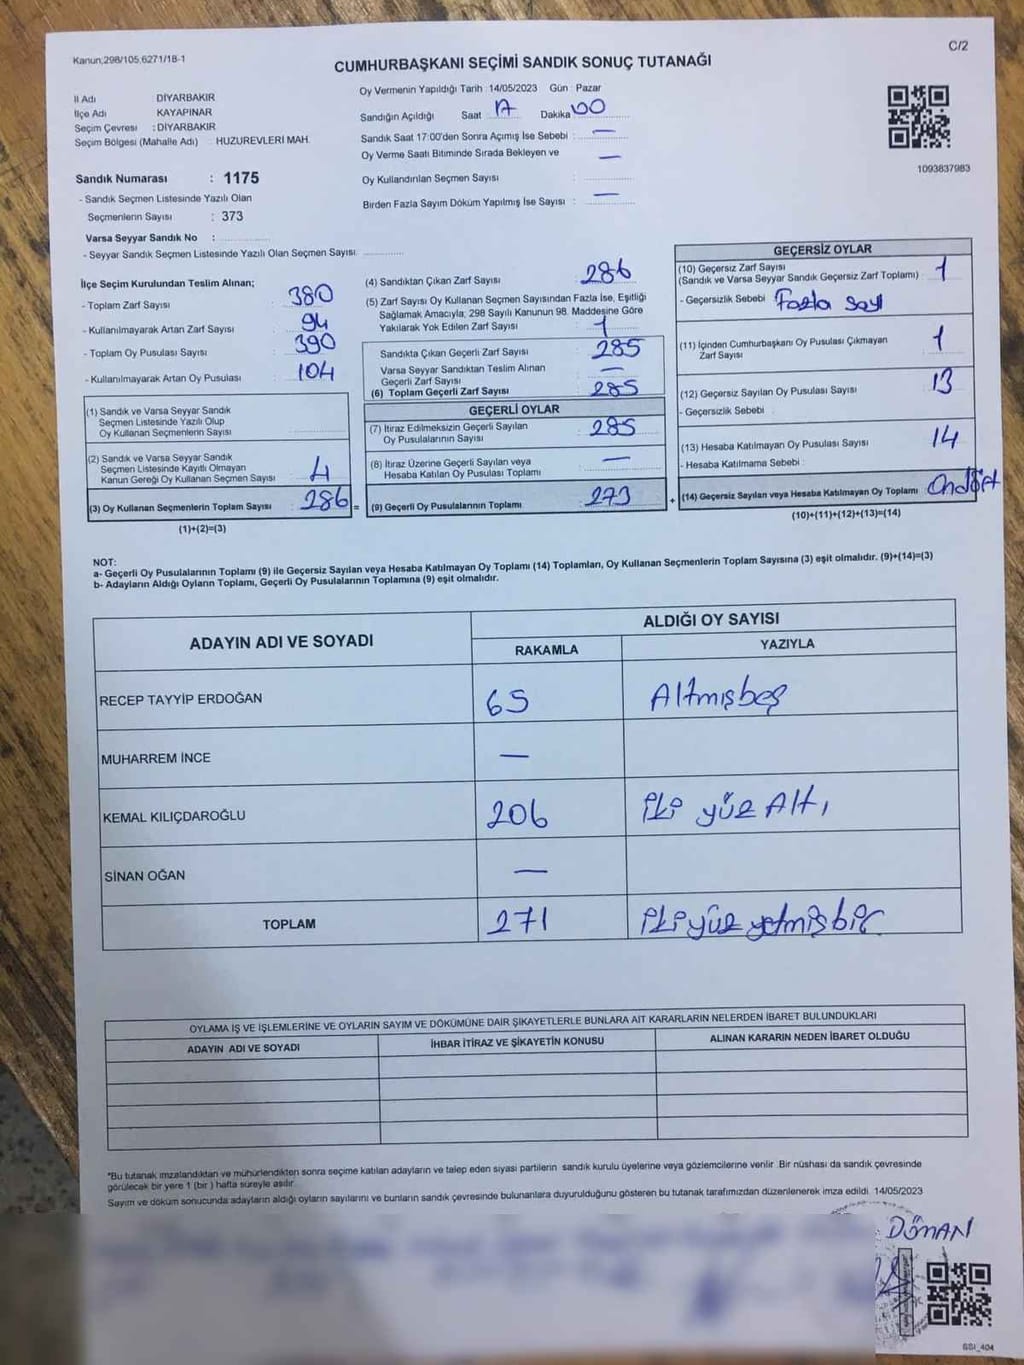 Kanun,298/105,6271/18-1
C/2
CUMHURBAŞKANI SEÇİMİ SANDIK SONUÇ TUTANAĞI
İl Adı DİYARBAKIR
İlçe Adı KAYAPINAR
Seçim Çevresi : DİYARBAKIR
Seçim Bölgesi (Mahalle Adı) : HUZUREVLERİ MAH.
Sandık Numarası : 1175
- Sandık Seçmen Listesinde Yazılı Olan
Seçmenlerin Sayısı : 373
Varsa Seyyar Sandık No :
- Seyyar Sandık Seçmen Listesinde Yazılı Olan Seçmen Sayısı
Oy Vermenin Yapıldığı Tarih : 14/05/2023 Gün : Pazar
Sandığın Açıldığı Saat 17 Dakika 00
Sandık Saat 17:00'den Sonra Açımış İse Sebebi : —
Oy Verme Saati Bitiminde Sırada Bekleyen ve —
Oy Kullandırılan Seçmen Sayısı :
Birden Fazla Sayım Döküm Yapılmış İse Sayısı : —
1093837983
İlçe Seçim Kurulundan Teslim Alınan;
- Toplam Zarf Sayısı : 380
- Kullanılmayarak Artan Zarf Sayısı : 94
- Toplam Oy Pusulası Sayısı : 390
- Kullanılmayarak Artan Oy Pusulası : 104
(1) Sandık ve Varsa Seyyar Sandık
Seçmen Listesinde Yazılı Olup
Oy Kullanan Seçmenlerin Sayısı
(2) Sandık ve Varsa Seyyar Sandık
Seçmen Listesinde Kayıtlı Olmayan
Kanun Gereği Oy Kullanan Seçmen Sayısı 4
(3) Oy Kullanan Seçmenlerin Toplam Sayısı : 286 =
(1)+(2)=(3)
(4) Sandıktan Çıkan Zarf Sayısı 286
(5) Zarf Sayısı Oy Kullanan Seçmen Sayısından Fazla İse, Eşitliği
Sağlamak Amacıyla; 298 Sayılı Kanunun 98. Maddesine Göre
Yakılarak Yok Edilen Zarf Sayısı : 1
Sandıkta Çıkan Geçerli Zarf Sayısı 285
Varsa Seyyar Sandıktan Teslim Alınan
Geçerli Zarf Sayısı —
(6) Toplam Geçerli Zarf Sayısı : 285
GEÇERLİ OYLAR
(7) İtiraz Edilmeksizin Geçerli Sayılan
Oy Pusulalarının Sayısı : 285
(8) İtiraz Üzerine Geçerli Sayılan veya
Hesaba Katılan Oy Pusulası Toplamı —
(9) Geçerli Oy Pusulalarının Toplamı : 273 +
GEÇERSİZ OYLAR
(10) Geçersiz Zarf Sayısı 1
(Sandık ve Varsa Seyyar Sandık Geçersiz Zarf Toplamı)
- Geçersizlik Sebebi Fazla sayı
(11) İçinden Cumhurbaşkanı Oy Pusulası Çıkmayan 1
Zarf Sayısı
(12) Geçersiz Sayılan Oy Pusulası Sayısı 13
- Geçersizlik Sebebi
(13) Hesaba Katılmayan Oy Pusulası Sayısı 14
- Hesaba Katılmama Sebebi
(14) Geçersiz Sayılan veya Hesaba Katılmayan Oy Toplamı
(10)+(11)+(12)+(13)=(14)
NOT:
a- Geçerli Oy Pusulalarının Toplamı (9) ile Geçersiz Sayılan veya Hesaba Katılmayan Oy Toplamı (14) Toplamları, Oy Kullanan Seçmenlerin Toplam Sayısına (3) eşit olmalıdır. (9)+(14)=(3)
b- Adayların Aldığı Oyların Toplamı, Geçerli Oy Pusulalarının Toplamına (9) eşit olmalıdır.
ADAYIN ADI VE SOYADI
ALDIĞI OY SAYISI
RAKAMLA YAZIYLA
RECEP TAYYİP ERDOĞAN 65 Altmışbeş
MUHARREM İNCE —
KEMAL KILIÇDAROĞLU 206 iki yüz Altı
SİNAN OĞAN —
TOPLAM 271 iki yüz yetmiş bir
OYLAMA İŞ VE İŞLEMLERİNE VE OYLARIN SAYIM VE DÖKÜMÜNE DAİR ŞİKAYETLERLE BUNLARA AİT KARARLARIN NELERDEN İBARET BULUNDUKLARI
ADAYIN ADI VE SOYADI İHBAR İTİRAZ VE ŞİKAYETİN KONUSU ALINAN KARARIN NEDEN İBARET OLDUĞU
*Bu tutanak imzalandıktan ve mühürlendikten sonra seçime katılan adayların ve talep eden siyasi partilerin sandık kurulu üyelerine veya gözlemcilerine verilir. Bir nüshası da sandık çevresinde
görülecek bir yere 1 (bir ) hafta süreyle asılır.
Sayım ve döküm sonucunda adayların aldığı oyların sayılarını ve bunların sandık çevresinde bulunanlara duyurulduğunu gösteren bu tutanak tarafımızdan düzenlenerek imza edildi. 14/05/2023
DÖMAN
SSI_404